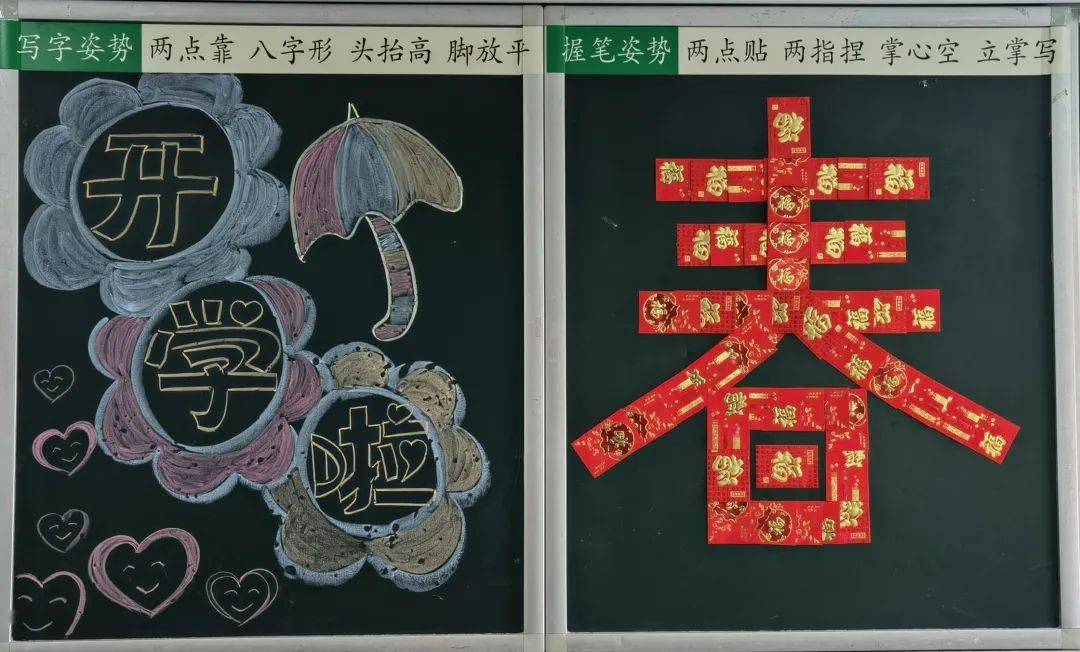 写字姿势 两点靠 八字形 头抬高 脚放平
握笔姿势 两点贴 两指捏 掌心空 立掌写
开
学
啦
春
福
福
福